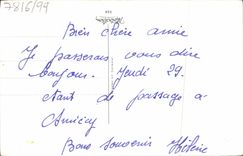 7816/99
Bien chère amie
Je passerais vous dire
bonjour. Jeudi 29.
étant de passage à
Annecy
Bons souvenirs Hélène